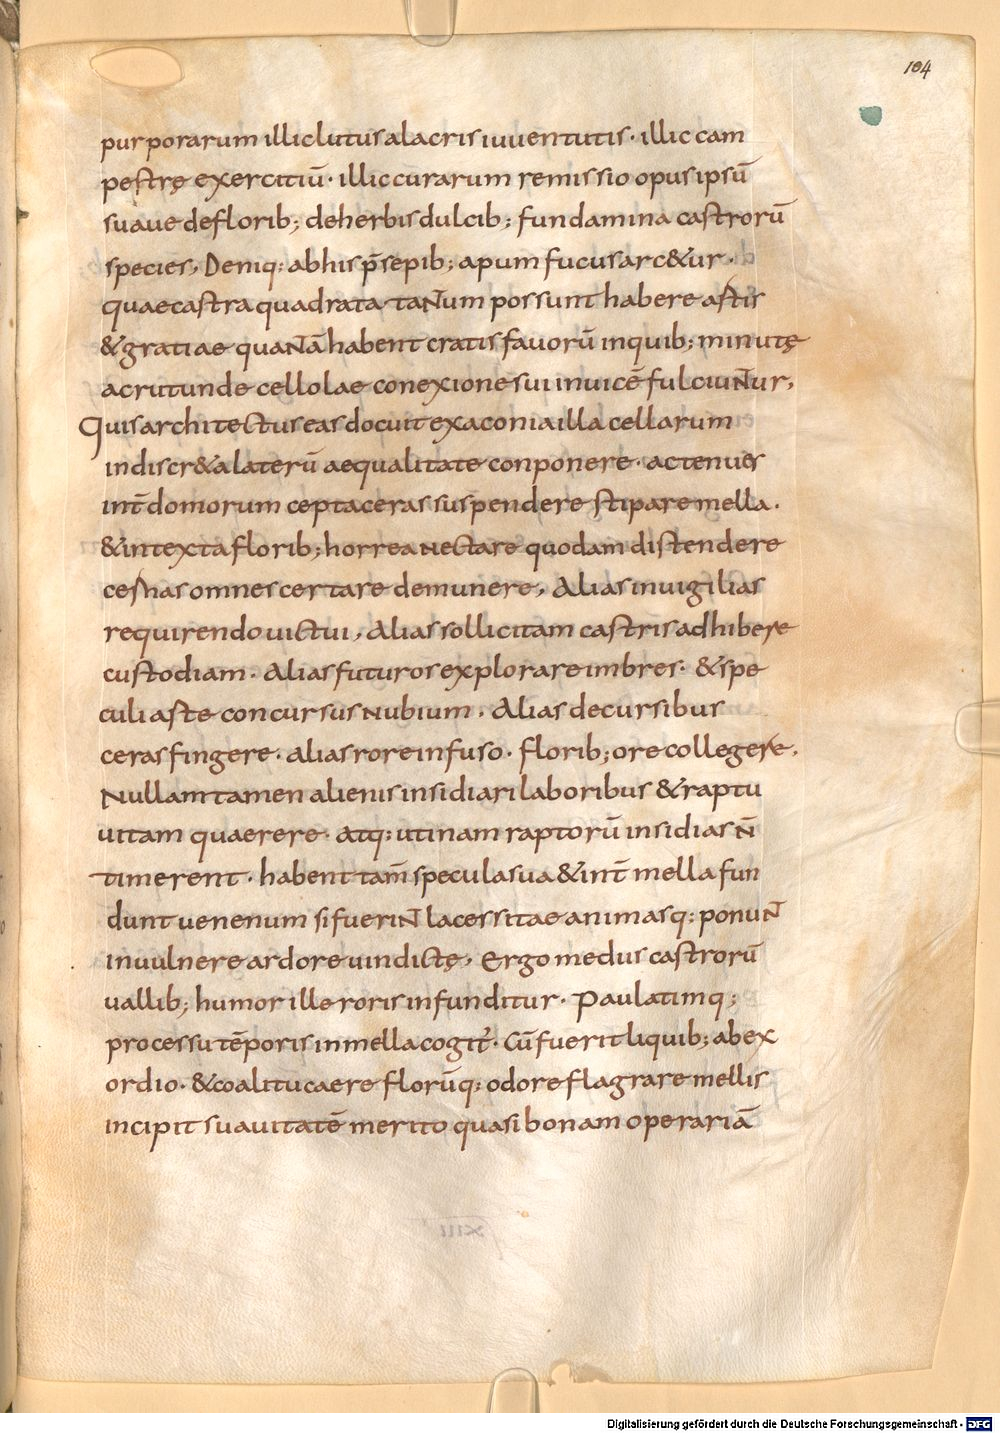 104
purporarum illic lutus alacris iuuentutis · illic cam
pestrę exercitiū · illic curarum remissio opus ipsū
suaue de florib; de herbis dulcib; fundamina castrorū
species, Deniq: ab his p̄sepib; apum fucus arc&ur ·
quae castra quadrata taNtum possunt habere astis
& gratiae quaNtā habent cratis fauorū in quib; minutę
ac rutunde cellolae conexione sui inuicē fulciuNtur,
Quis architectus eas docuit exaconia illa cellarum
indiscr&a laterū aequalitate conponere · ac tenues
int̄ domorum cepta ceras suspendere stipare mella ·
& intexta florib; horrea nectare quodam distendere
cernas omnes certare de munere, Alias inuigilias
requirendo uictui, Alias sollicitam castris adhibere
custodiam · Alias futuros explorare imbres · & spe
culi aste concursus nubium, Alias de cursibus
ceras fingere · alias rore infuso · florib; ore collegere,
Nullam tamen alienis insidiari laboribus & raptu
uitam quaerere · atq: utinam raptorū insidias n̄
timerent · habent tam̄ specula sua & int̄ mella fun
dunt uenenum si fueriNt lacessitae animasq: ponuNt
in uulnere ardore uindictę, Ergo medus castrorū
uallib; humor ille roris infunditur · Paulatimq;
processu tēporis in mella cogit᷑ · Cū fuerit liquib; ab ex
ordio · & coalitu caere florūq: odore flagrare mellis
incipit suauitatē merito quasi bonam operariā
Digitalisierung gefördert durch die Deutsche Forschungsgemeinschaft - DFG